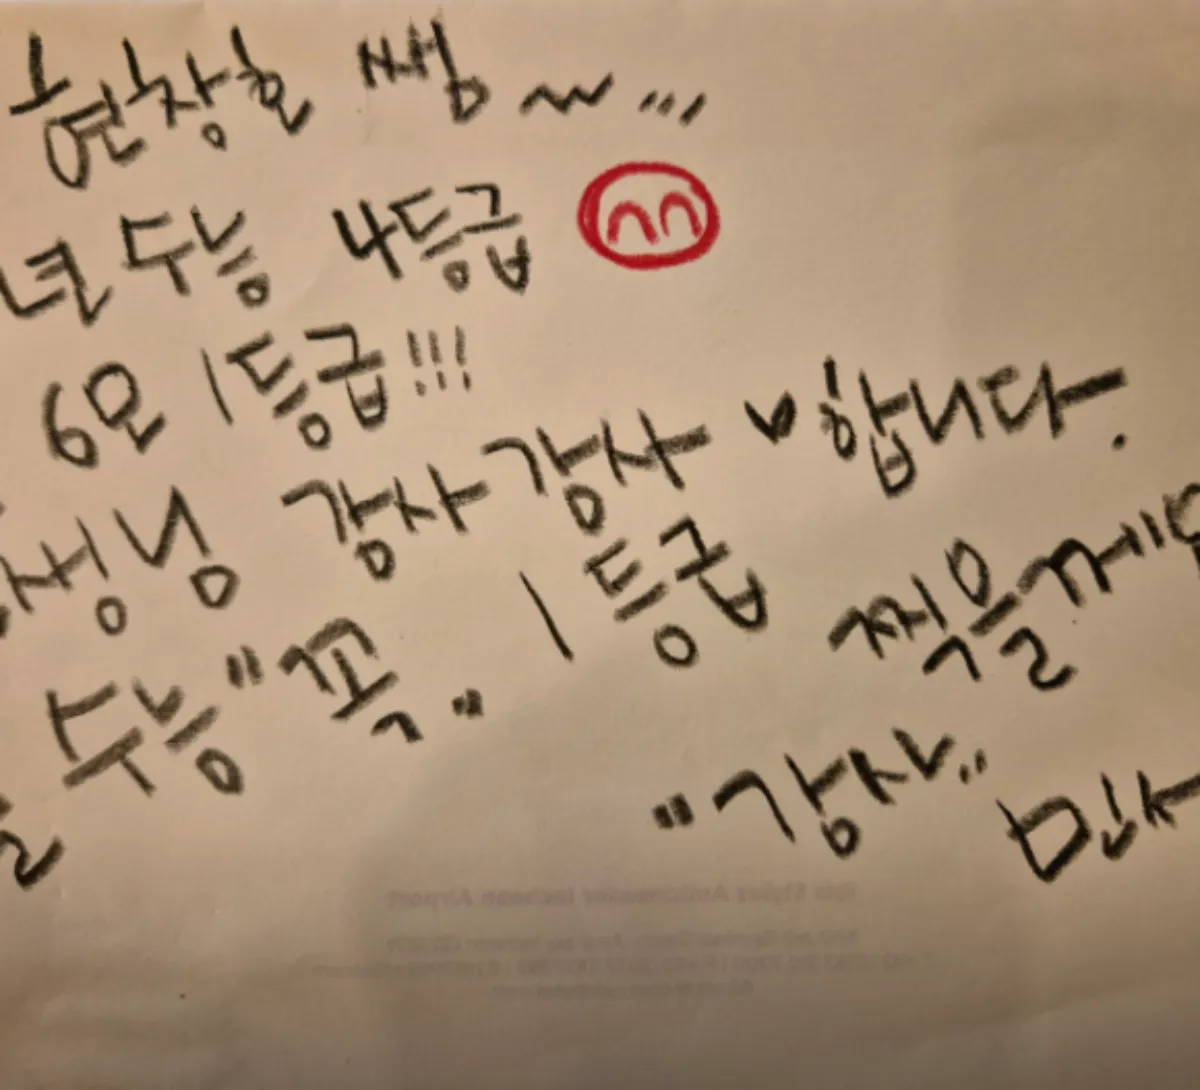 쌤 ~ ...
년 수능 4등급
6모 1등급!!!
생님 감사감사 ♥합니다.
수능 "꼭" 1등급 찍을께
"감사"